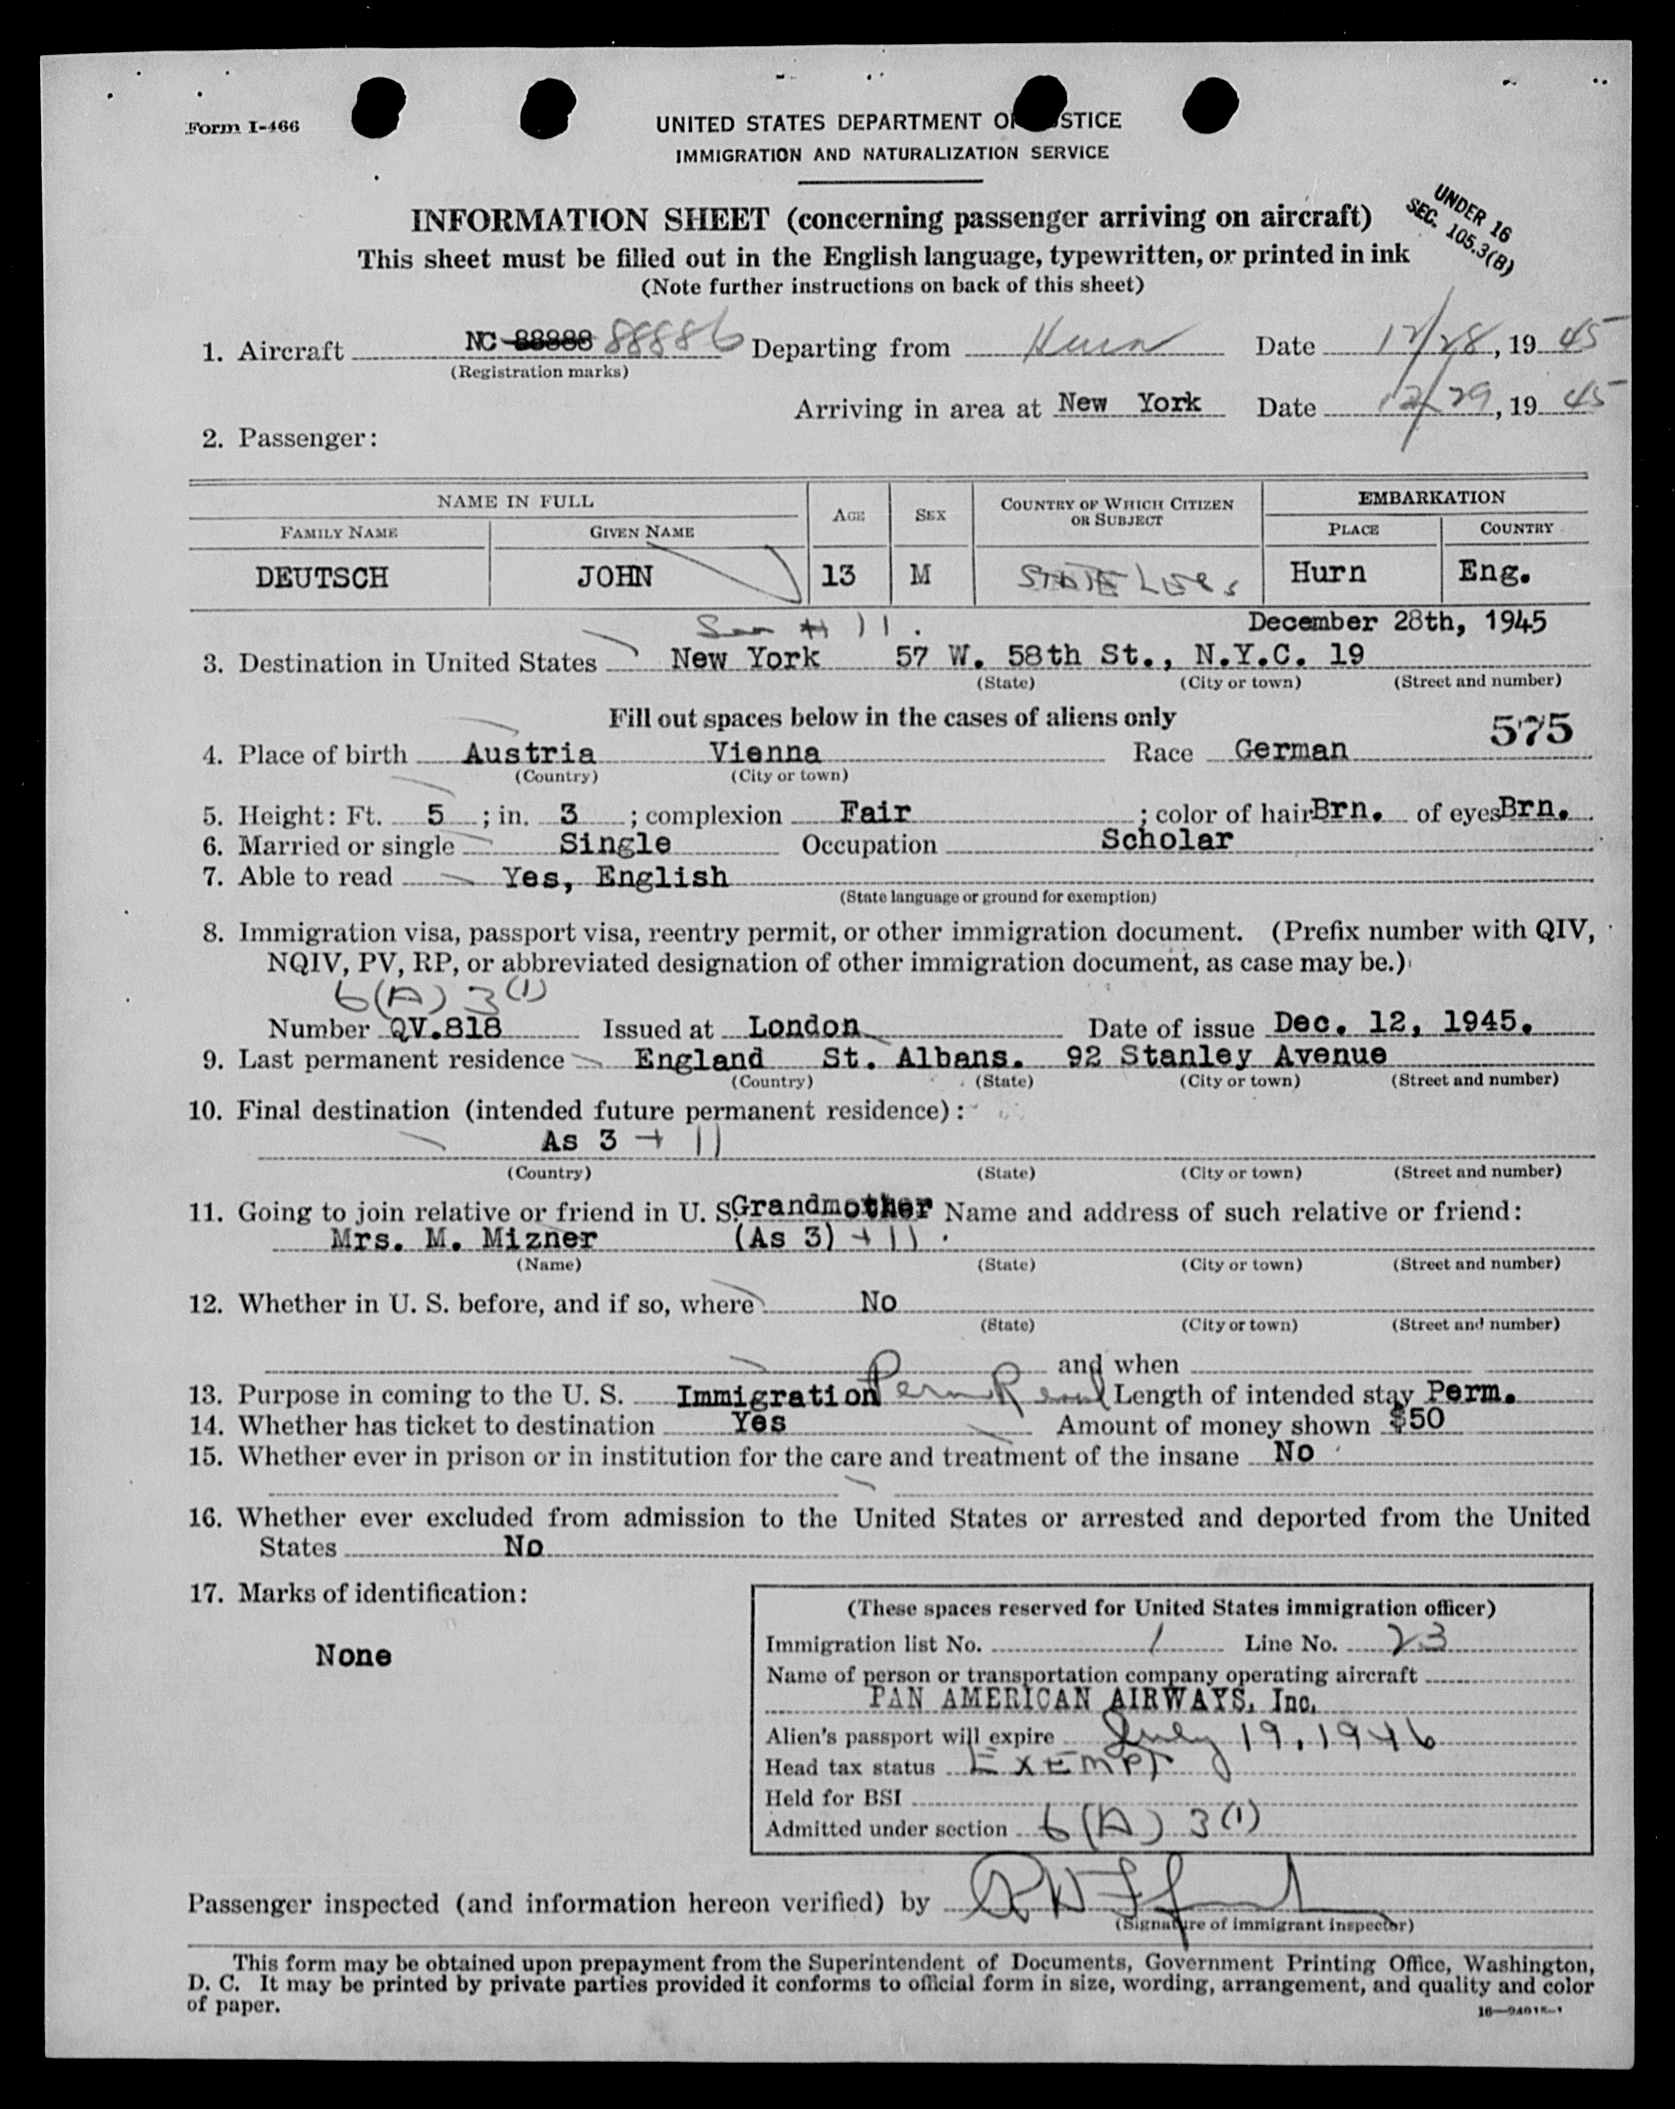 Form I-466
UNITED STATES DEPARTMENT OF JUSTICE
IMMIGRATION AND NATURALIZATION SERVICE
INFORMATION SHEET (concerning passenger arriving on aircraft)
UNDER 16
SEC. 105.3(B)
This sheet must be filled out in the English language, typewritten, or printed in ink
(Note further instructions on back of this sheet)
1. Aircraft NC 88888 88886 Departing from Hurn Date 12/28, 1945
(Registration marks)
Arriving in area at New York Date 12/29, 1945
2. Passenger:
NAME IN FULL AGE SEX COUNTRY OF WHICH CITIZEN OR SUBJECT EMBARKATION
FAMILY NAME GIVEN NAME PLACE COUNTRY
DEUTSCH JOHN 13 M STATELESS Hurn Eng.
December 28th, 1945
3. Destination in United States New York 57 W. 58th St., N.Y.C. 19
(State) (City or town) (Street and number)
Fill out spaces below in the cases of aliens only
575
4. Place of birth Austria Vienna Race German
(Country) (City or town)
5. Height: Ft. 5; in. 3; complexion Fair; color of hair Brn. of eyes Brn.
6. Married or single Single Occupation Scholar
7. Able to read Yes, English
(State language or ground for exemption)
8. Immigration visa, passport visa, reentry permit, or other immigration document. (Prefix number with QIV,
NQIV, PV, RP, or abbreviated designation of other immigration document, as case may be.)
6(A) 3(1)
Number QV.818 Issued at London Date of issue Dec. 12, 1945.
9. Last permanent residence England St. Albans. 92 Stanley Avenue
(Country) (State) (City or town) (Street and number)
10. Final destination (intended future permanent residence):
As 3 + 11
(Country) (State) (City or town) (Street and number)
11. Going to join relative or friend in U. S. Grandmother Name and address of such relative or friend:
Mrs. M. Mizner (As 3) + 11.
(Name) (State) (City or town) (Street and number)
12. Whether in U. S. before, and if so, where No
(State) (City or town) (Street and number)
and when
13. Purpose in coming to the U. S. Immigration Perm Length of intended stay Perm.
14. Whether has ticket to destination Yes Amount of money shown $50
15. Whether ever in prison or in institution for the care and treatment of the insane No
16. Whether ever excluded from admission to the United States or arrested and deported from the United
States No
17. Marks of identification:
None
(These spaces reserved for United States immigration officer)
Immigration list No. 1 Line No. 23
Name of person or transportation company operating aircraft
PAN AMERICAN AIRWAYS, Inc.
Alien's passport will expire July 19, 1946
Head tax status EXEMPT
Held for BSI
Admitted under section 6(A) 3(1)
Passenger inspected (and information hereon verified) by
(Signature of immigrant inspector)
This form may be obtained upon prepayment from the Superintendent of Documents, Government Printing Office, Washington,
D. C. It may be printed by private parties provided it conforms to official form in size, wording, arrangement, and quality and color
of paper.